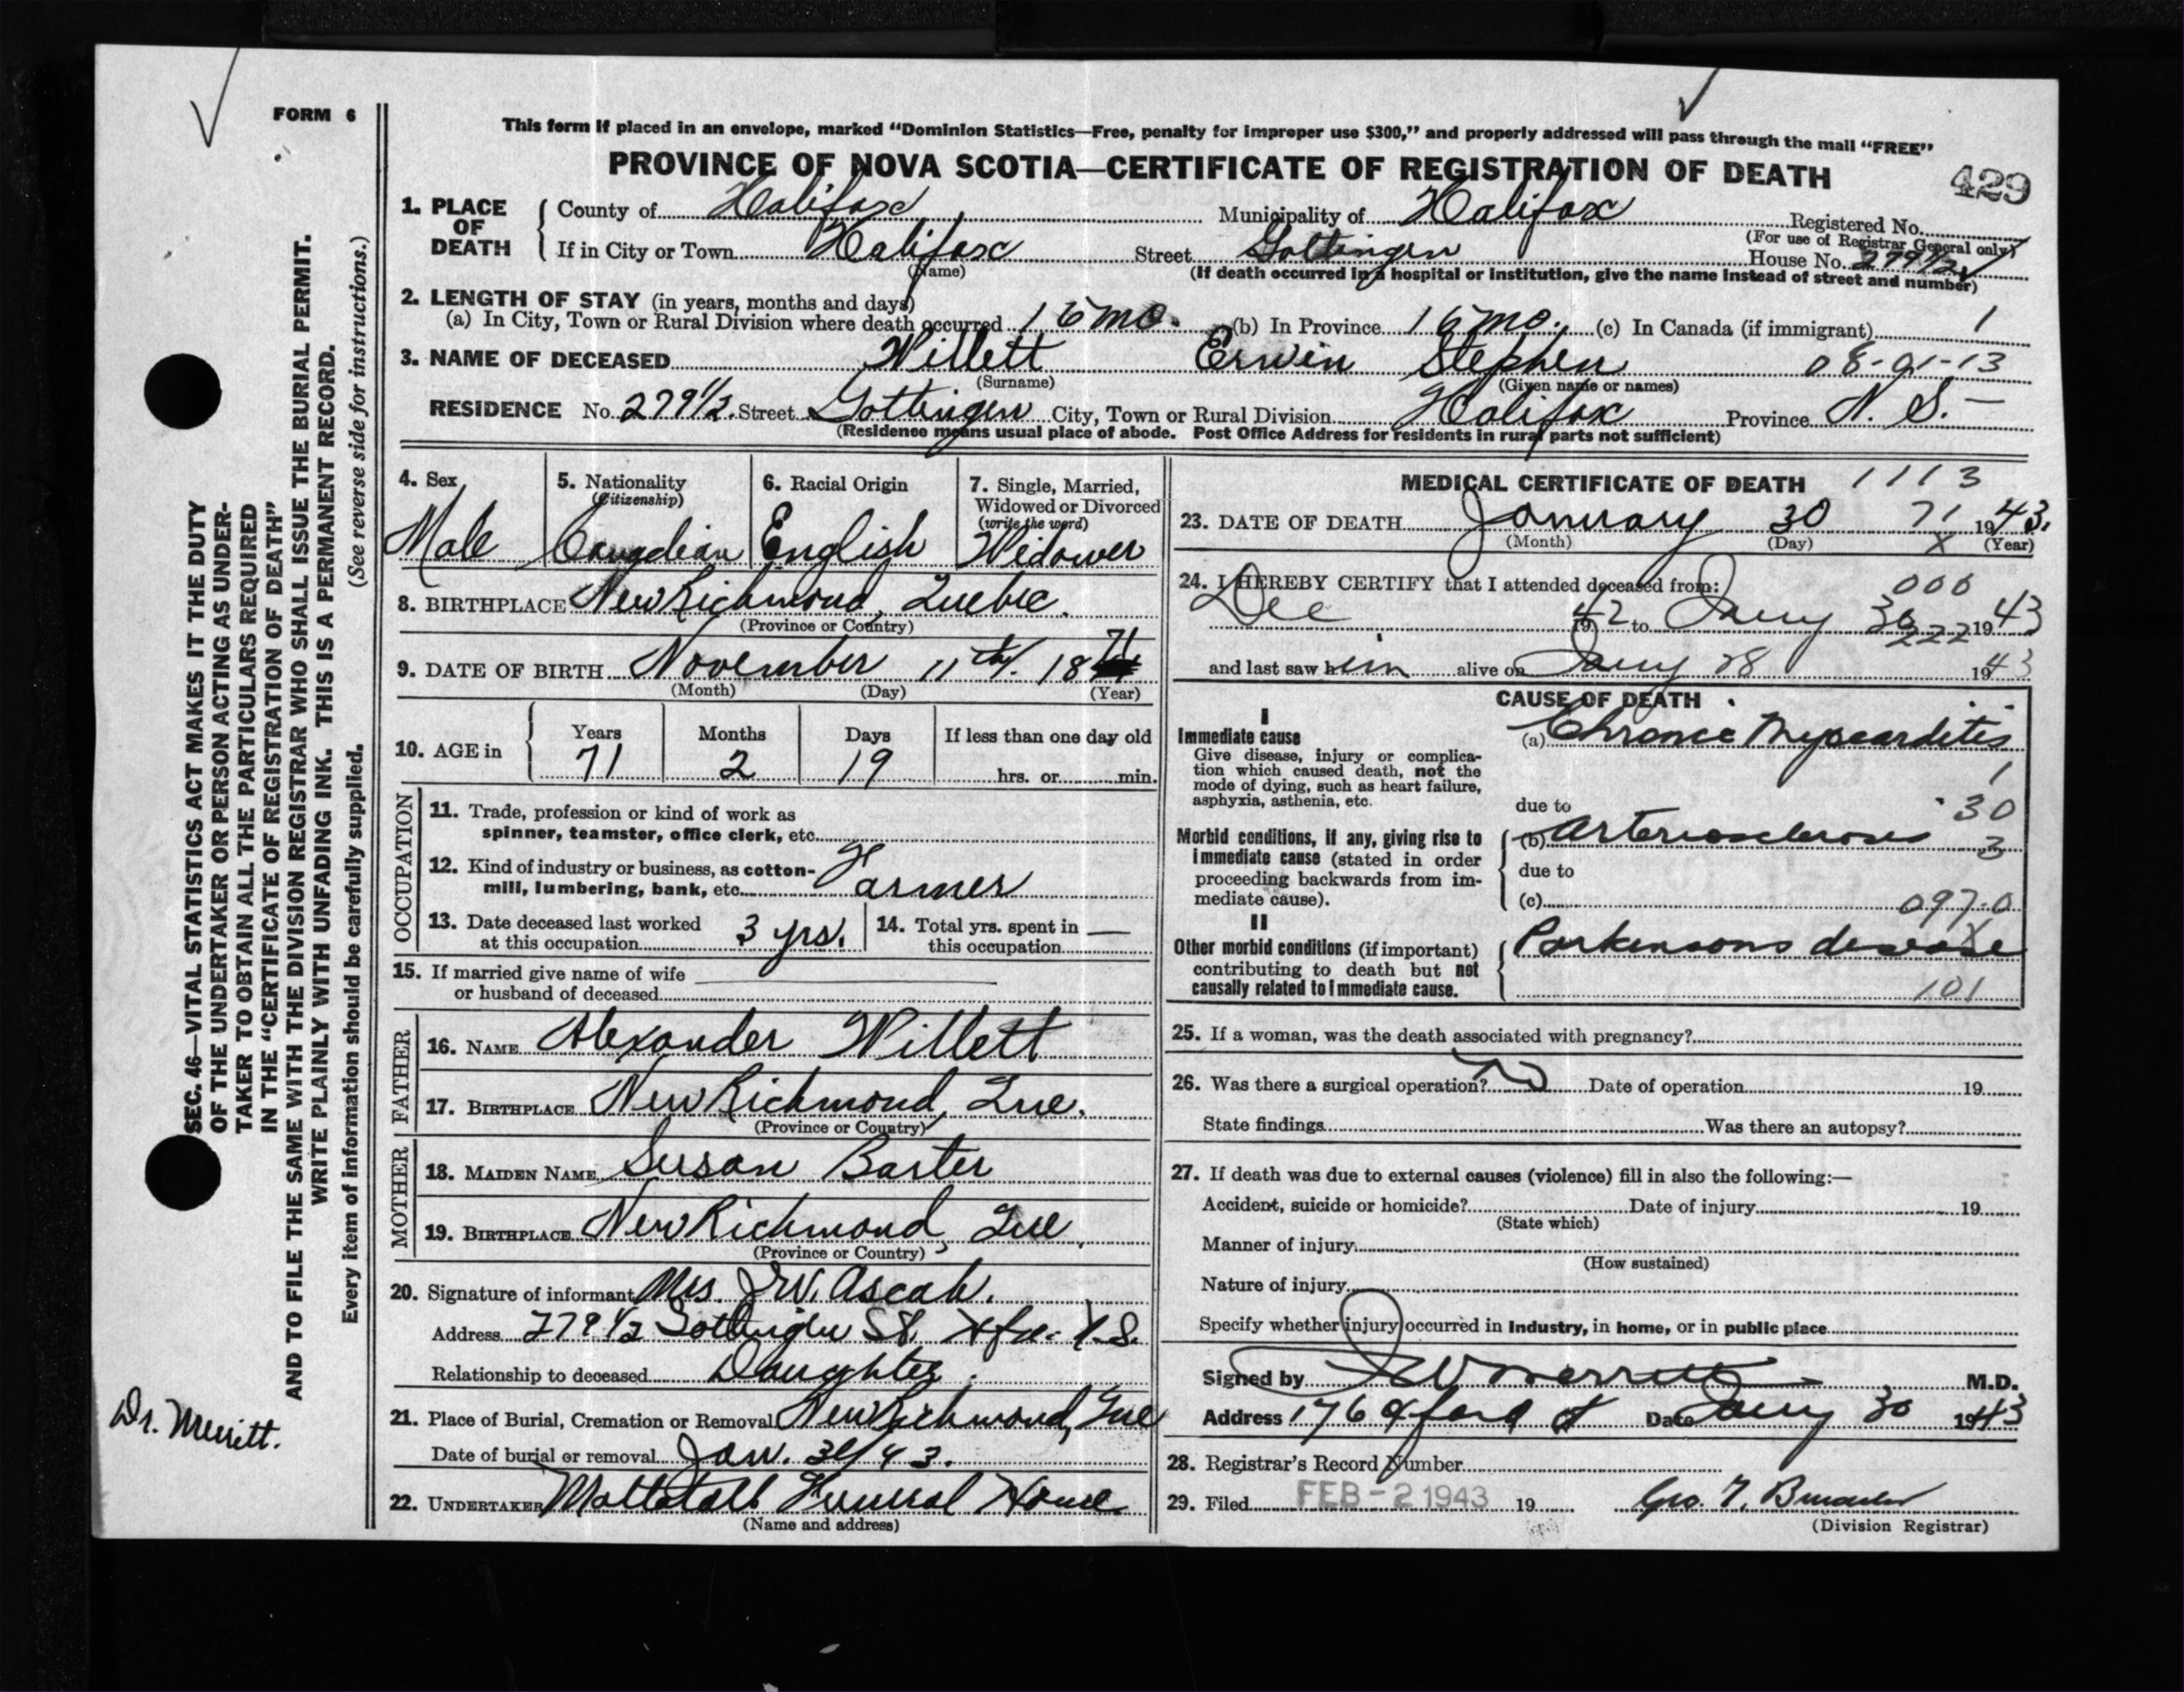 FORM 6
This form if placed in an envelope, marked "Dominion Statistics—Free, penalty for improper use $300," and properly addressed will pass through the mail "FREE"
PROVINCE OF NOVA SCOTIA—CERTIFICATE OF REGISTRATION OF DEATH
429
1. PLACE OF DEATH
County of Halifax Municipality of Halifax Registered No.
(For use of Registrar General only)
If in City or Town Halifax Street Gottingen House No. 279½
(Name) (If death occurred in a hospital or institution, give the name instead of street and number)
2. LENGTH OF STAY (in years, months and days)
(a) In City, Town or Rural Division where death occurred 16 mo. (b) In Province 16 mo. (c) In Canada (if immigrant) 1
3. NAME OF DECEASED Willett Erwin Stephen 08-91-13
(Surname) (Given name or names)
RESIDENCE No. 279½ Street Gottingen City, Town or Rural Division Halifax Province N. S.—
(Residence means usual place of abode. Post Office Address for residents in rural parts not sufficient)
4. Sex
Male
5. Nationality
(Citizenship)
Canadian
6. Racial Origin
English
7. Single, Married,
Widowed or Divorced
(write the word)
Widower
8. BIRTHPLACE New Richmond, Quebec.
(Province or Country)
9. DATE OF BIRTH November 11th. 1871
(Month) (Day) (Year)
10. AGE in
Years Months Days If less than one day old
71 2 19 hrs. or min.
OCCUPATION
11. Trade, profession or kind of work as
spinner, teamster, office clerk, etc.
12. Kind of industry or business, as cotton-
mill, lumbering, bank, etc. Farmer
13. Date deceased last worked
at this occupation 3 yrs.
14. Total yrs. spent in
this occupation —
15. If married give name of wife
or husband of deceased
FATHER
16. NAME Alexander Willett
17. BIRTHPLACE New Richmond, Que.
(Province or Country)
MOTHER
18. MAIDEN NAME Susan Barter
19. BIRTHPLACE New Richmond, Que.
(Province or Country)
20. Signature of informant Mrs. J.W. Ascah.
Address 279½ Gottingen St. Hfx. N.S.
Relationship to deceased Daughter.
21. Place of Burial, Cremation or Removal New Richmond, Que
Date of burial or removal Jan. 43.
22. UNDERTAKER Mattatall Funeral Home
(Name and address)
MEDICAL CERTIFICATE OF DEATH 1113
23. DATE OF DEATH January 30 71 1943.
(Month) (Day) x (Year)
24. I HEREBY CERTIFY that I attended deceased from: 000
Dec 1942 to Jany 30 1943
222
and last saw him alive on Jany 28 1943
CAUSE OF DEATH
I
Immediate cause
Give disease, injury or complica-
tion which caused death, not the
mode of dying, such as heart failure,
asphyxia, asthenia, etc.
(a) Chronic Myocarditis
1
due to 30
Morbid conditions, if any, giving rise to
immediate cause (stated in order
proceeding backwards from im-
mediate cause).
(b) Arteriosclerosis 3
due to
(c) 097.0
II
Other morbid conditions (if important)
contributing to death but not
causally related to immediate cause.
Parkinsons disease
101
25. If a woman, was the death associated with pregnancy?
26. Was there a surgical operation? No Date of operation 19
State findings Was there an autopsy?
27. If death was due to external causes (violence) fill in also the following:—
Accident, suicide or homicide? Date of injury 19
(State which)
Manner of injury
(How sustained)
Nature of injury
Specify whether injury occurred in Industry, in home, or in public place
Signed by Merritt M.D.
Address 176 Oxford St Date Jany 30 1943
28. Registrar's Record Number
29. Filed FEB - 2 1943 19 Geo. T.
(Division Registrar)
SEC. 46—VITAL STATISTICS ACT MAKES IT THE DUTY
OF THE UNDERTAKER OR PERSON ACTING AS UNDER-
TAKER TO OBTAIN ALL THE PARTICULARS REQUIRED
IN THE "CERTIFICATE OF REGISTRATION OF DEATH"
AND TO FILE THE SAME WITH THE DIVISION REGISTRAR WHO SHALL ISSUE THE BURIAL PERMIT.
WRITE PLAINLY WITH UNFADING INK. THIS IS A PERMANENT RECORD.
Every item of information should be carefully supplied. (See reverse side for instructions.)
Dr. Merritt.